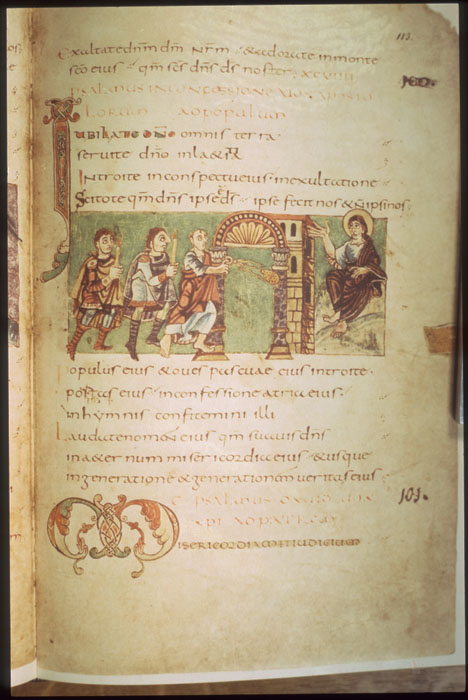 113.
exultatednm dm nrm · &adorate inmonte
sco eius · qm scs dns ds noster · XCVIIII
psalmus inconfessione
populum
Iubilate dno omnis terra ·
seruite dno inlaetitia
Introite inconspectu eius · inexultatione
Scitote qm dns ipse e ds · ipse fecit nos & n ipsi nos
populus eius & oues pascuae eius introite ·
portas eius · inconfessione atria eius ·
inhymnis confitemini illi
Laudate nomen eius qm suauis dns
inaeternum misericordia eius · & usque
ingeneratione & generationem ueritas eius
C psalmus dauid
xpi ad patrem
Misericordiam et iudicium
101.